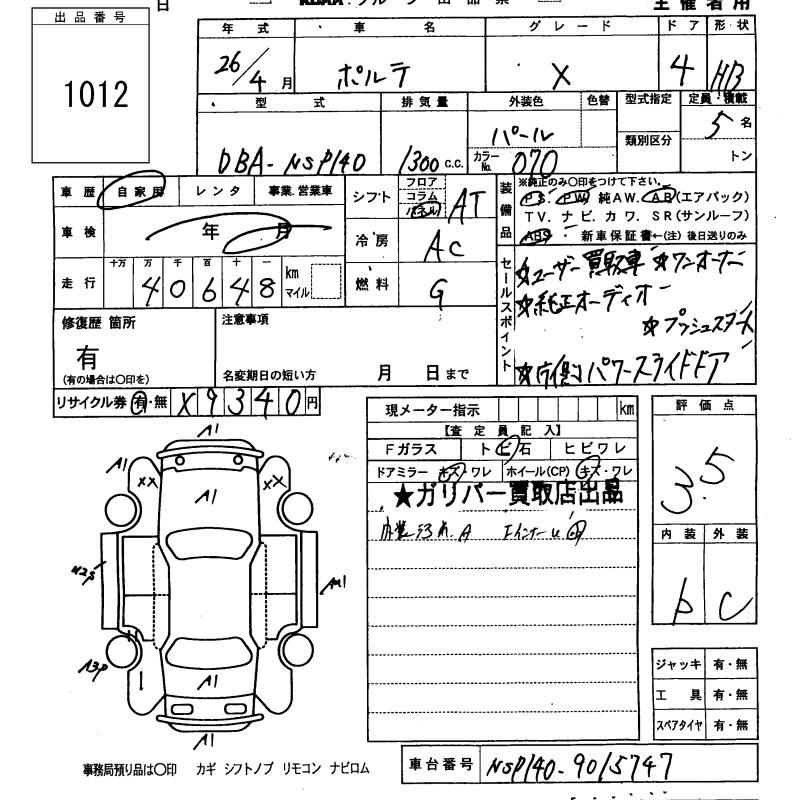 日
主催者用
出品番号
1012
年式 車名 グレード ドア 形状
26/4月 ポルテ X 4 HB
型式 排気量 外装色 色替 型式指定 定員・積載
DBA-NSP140 1300 c.c. パール 類別区分 5名
カラーNo. 070 トン
車歴 自家用 レンタ 事業.営業車
シフト フロア コラム AT
装備品 ※純正のみ〇印をつけて下さい。
P.S. P.W. 純AW. A.B(エアバック)
T V. ナ ビ. カ ワ. S R (サンルーフ)
ABS ・ 新車保証書←(注) 後日送りのみ
車検 年 月
冷房 AC
走行 十万 万 千 百 十 一 km マイル
40648
燃料 G
セールスポイント
☆ユーザー買取車 ☆ワンオーナー
☆純正オーディオ
☆プッシュスタート
☆左側パワースライドドア
修復歴 箇所
有
(有の場合は〇印を)
注意事項
名変期日の短い方 月 日まで
リサイクル券 有・無 X9340円
現メーター指示 km
【査定員記入】
Fガラス トビ石 ヒビワレ
ドアミラー キズ・ワレ ホイール(CP) キズ・ワレ
★ガリバー買取店出品
評価点
3.5
内装 外装
b C
A1
A1
xx
A1
xx
A1
A1
ジャッキ 有・無
工具 有・無
スペアタイヤ 有・無
事務局預り品は〇印 カギ シフトノブ リモコン ナビロム
車台番号 NSP140-9015747